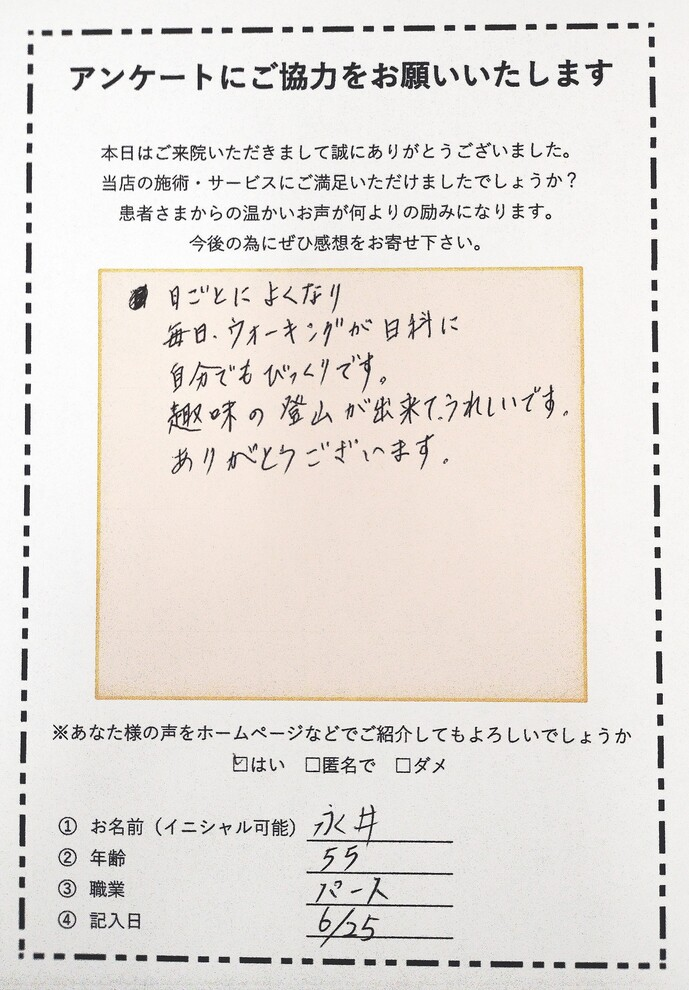 アンケートにご協力をお願いいたします
本日はご来院いただきまして誠にありがとうございました。
当店の施術・サービスにご満足いただけましたでしょうか？
患者さまからの温かいお声が何よりの励みになります。
今後の為にぜひ感想をお寄せ下さい。
日ごとによくなり
毎日、ウォーキングが日科に
自分でもびっくりです。
趣味の登山が出来て、うれしいです。
ありがとうございます。
※あなた様の声をホームページなどでご紹介してもよろしいでしょうか
☑はい □匿名で □ダメ
① お名前（イニシャル可能） 永井
② 年齢 55
③ 職業 パース
④ 記入日 6/25